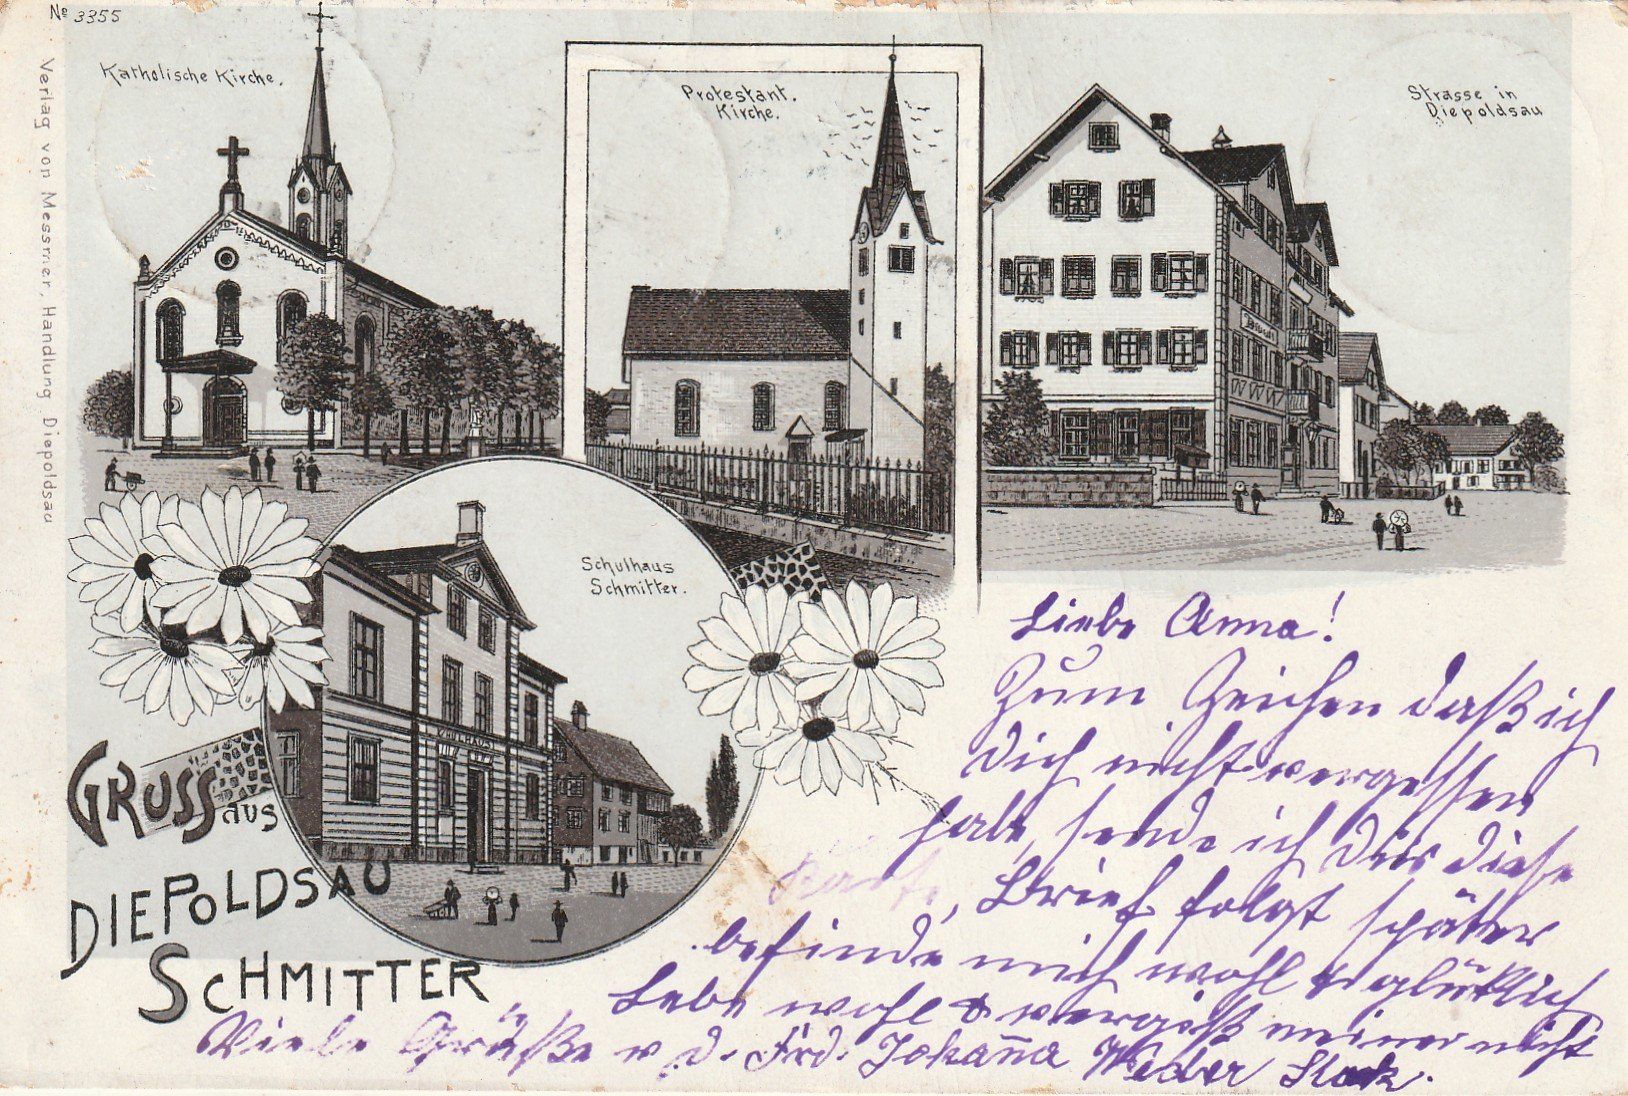 No 3355
Katholische Kirche.
Protestant.
Kirche.
Strasse in
Diepoldsau
Verlag von Messmer, Handlung, Diepoldsau
Schulhaus
Schmitter.
GRUSS aus
DIEPOLDSAU
SCHMITTER
Liebe Anna!
Zum Zeichen daß ich
Dich nicht vergessen
habe, sende ich Dir diese
Karte, Brief folgt später
befinde mich wohl & glücklich
Lebe wohl & vergiß meiner nicht
Viele Grüße v. d. Frd. Johanna Weder